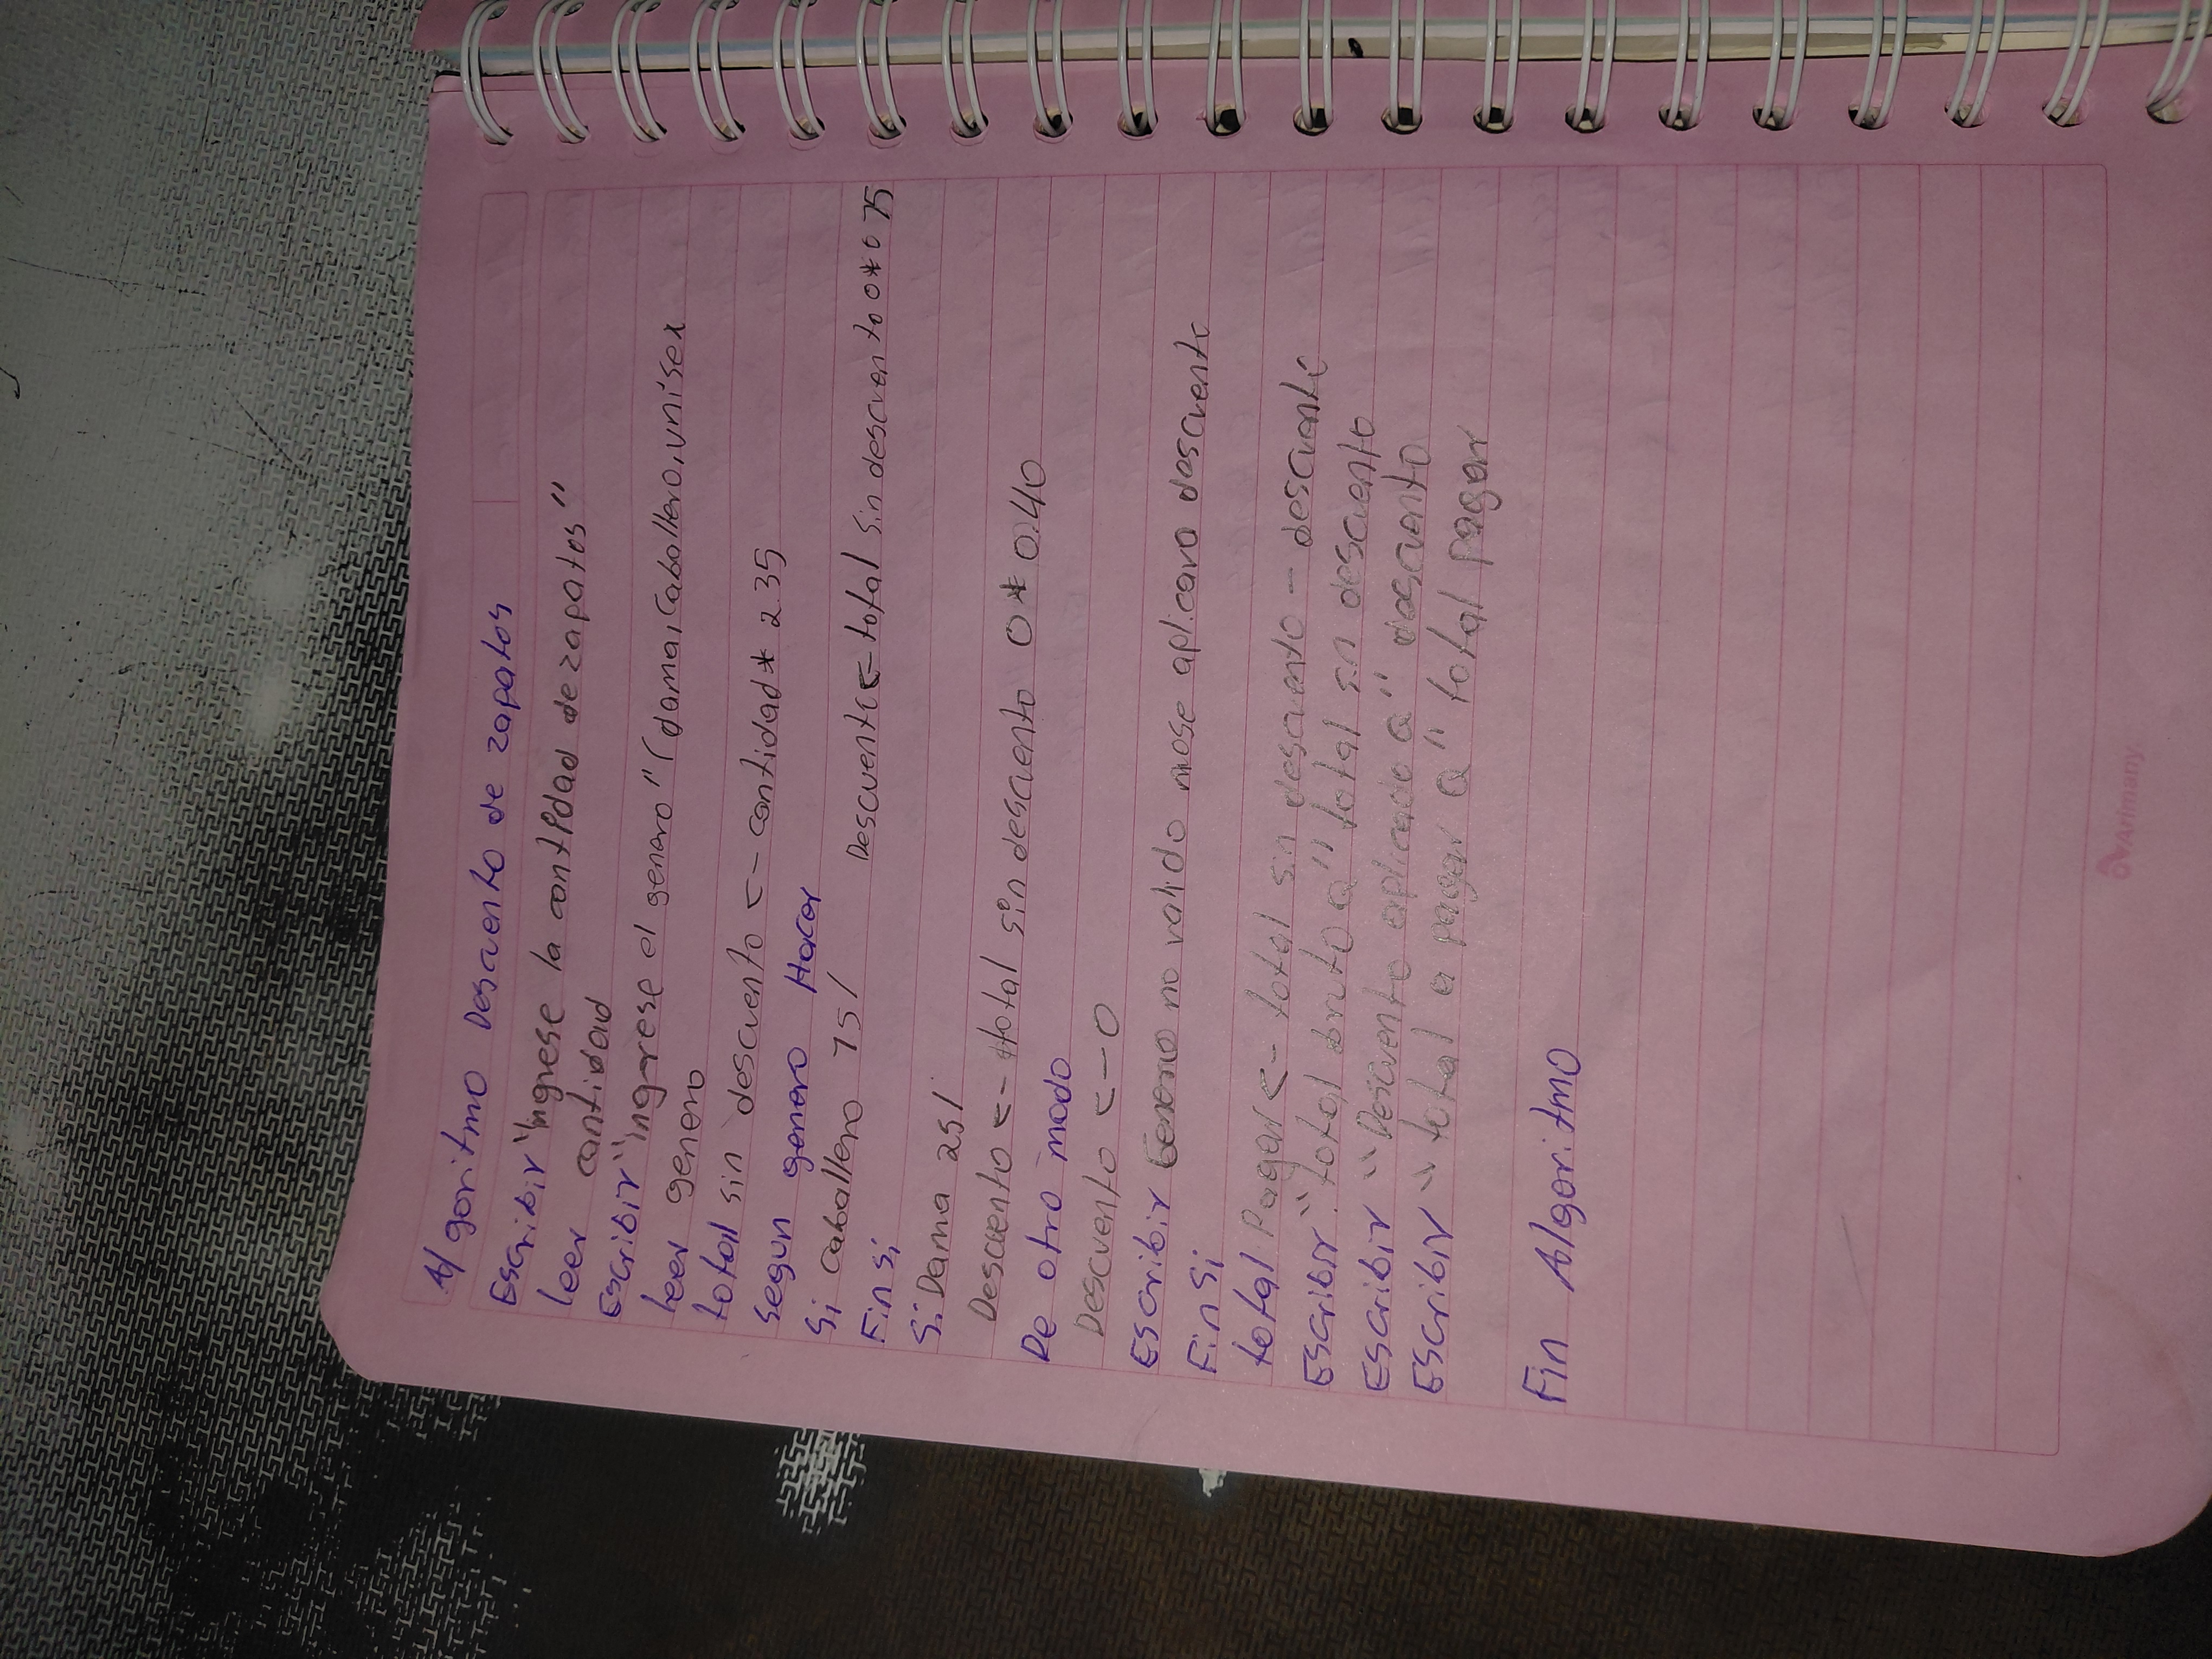 Algoritmo Descuento de zapatos
Escribir "ingrese la contidad de zapatos"
leer cantidad
Escribir "ingrese el genero" (dama, caballero, unisex
leer genero
total sin descuento <- cantidad * 235
segun genero Hacer
Si caballero 75/ Descuento <- total sin descuento 0 * 0 75
Fin si
Si Dama 25/
Descuento <- total sin descuento 0 * 0.40
De otro modo
Descuento <-- 0
Escribir Genero no valido nose aplicara descuento
Fin Si
total Pagar <- total sin descuento - descuento
Escribir "total bruto a" total sin descuento
Escribir "Descuento aplicado a" descuento
Escribir "total a pagar a" total pagar
Fin Algoritmo
Arimany